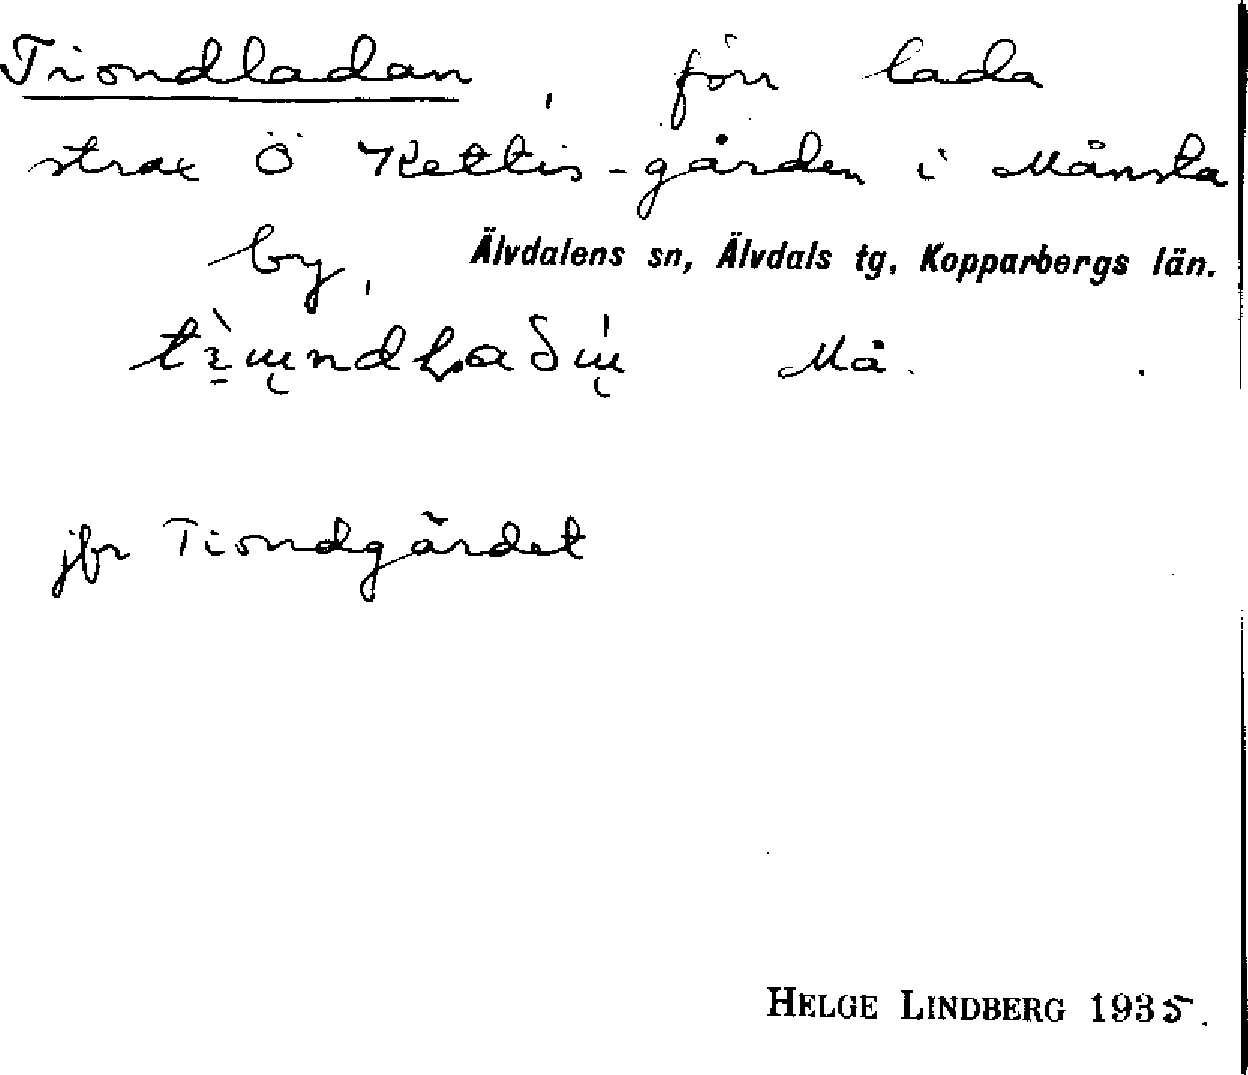 Tiondladan, förr lada
strax Ö Kettis-gården i Månsta
by, Älvdalens sn, Älvdals tg, Kopparbergs län.
Må.
jfr Tiondgärdet
HELGE LINDBERG 1935.